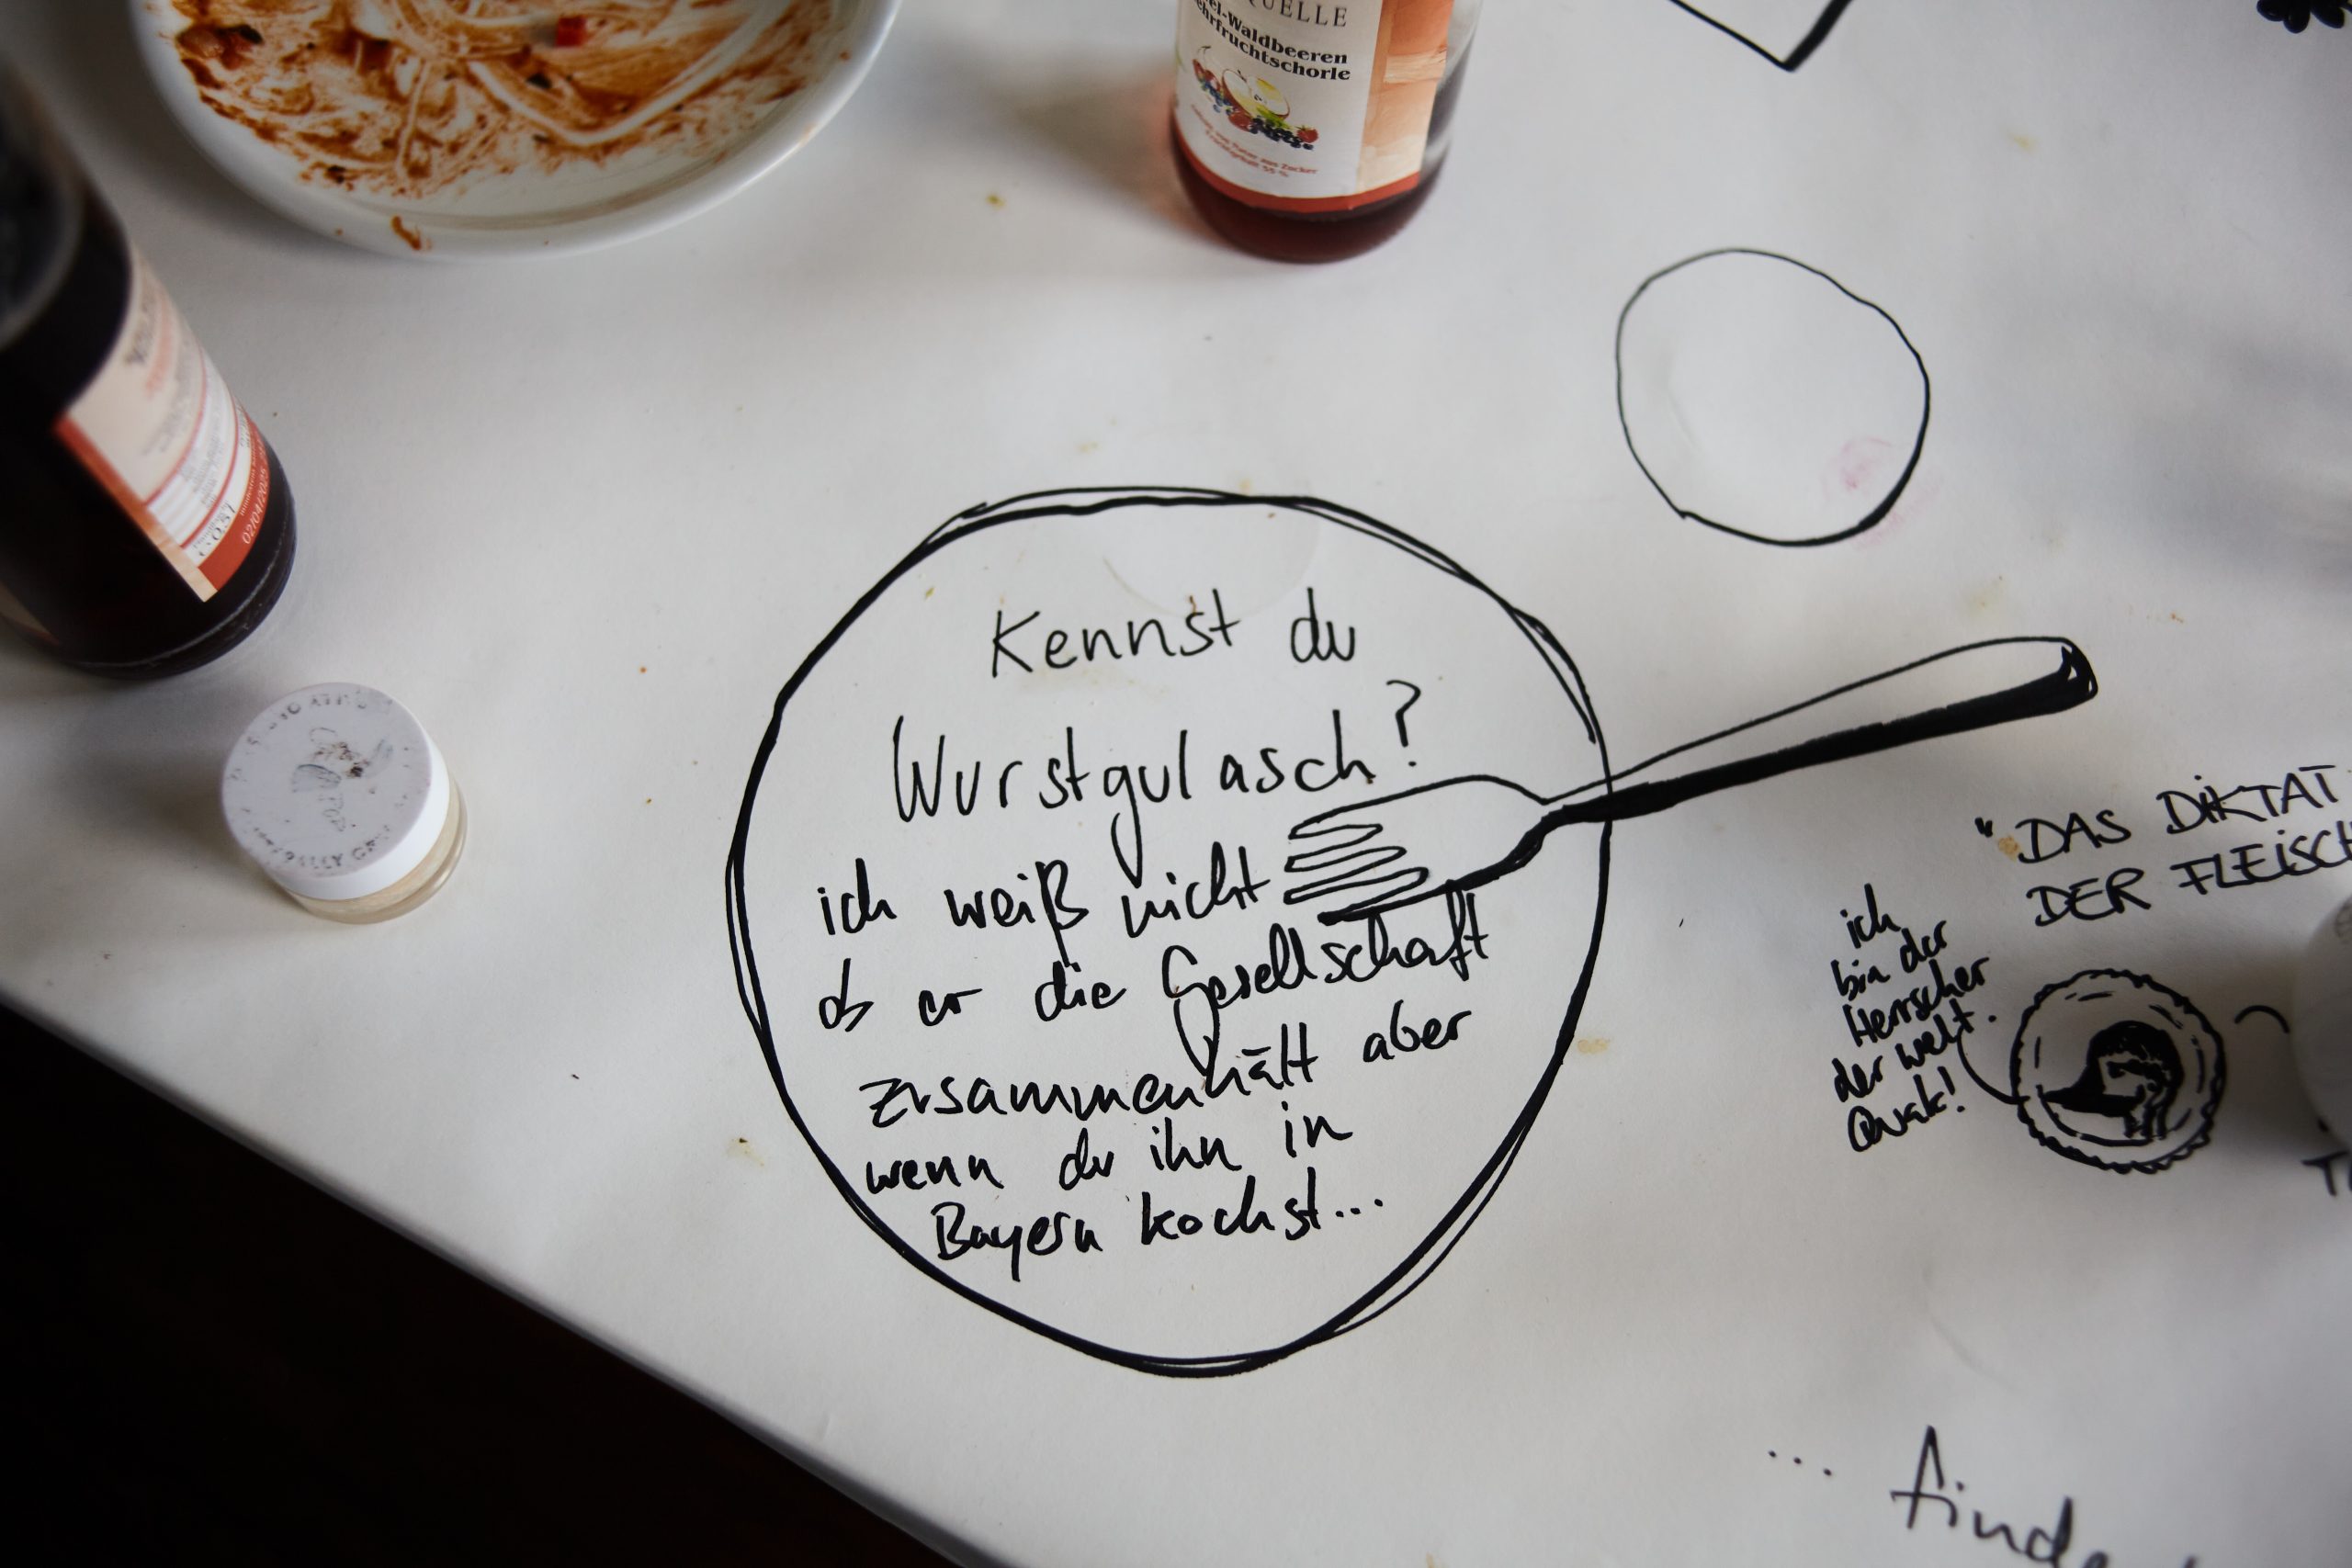 QUELLE
el-Waldbeeren
ehrfruchtschorle
02/04/2025
Kennst du
Wurstgulasch?
ich weiß nicht
ob er die Gesellschaft
zusammenhält aber
wenn du ihn in
Bayern kochst...
"DAS DIKTAT
DER FLEISCH
ich
bin der
Herrscher
der welt.
Quak!
... finde